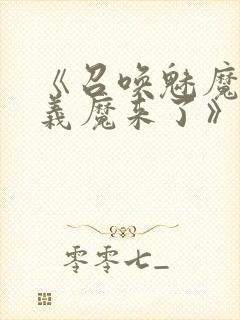 《召唤魅魔
義魔来了》
零零七_